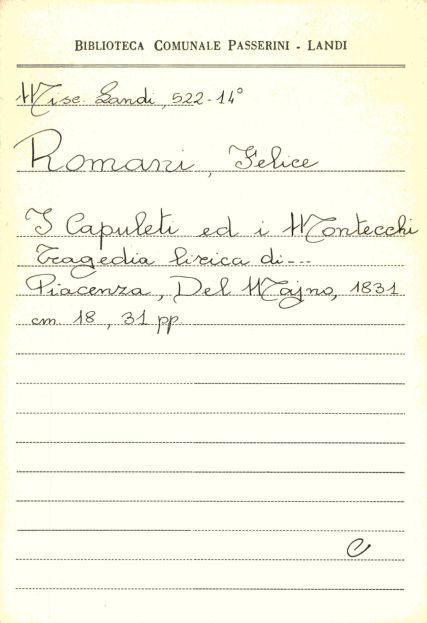 BIBLIOTECA COMUNALE PASSERINI - LANDI
Misc. Landi, 522-14°
Romani, Felice
I Capuleti ed i Montecchi
Tragedia lirica di---
Piacenza, Del Majno, 1831
cm. 18, 31 pp
C